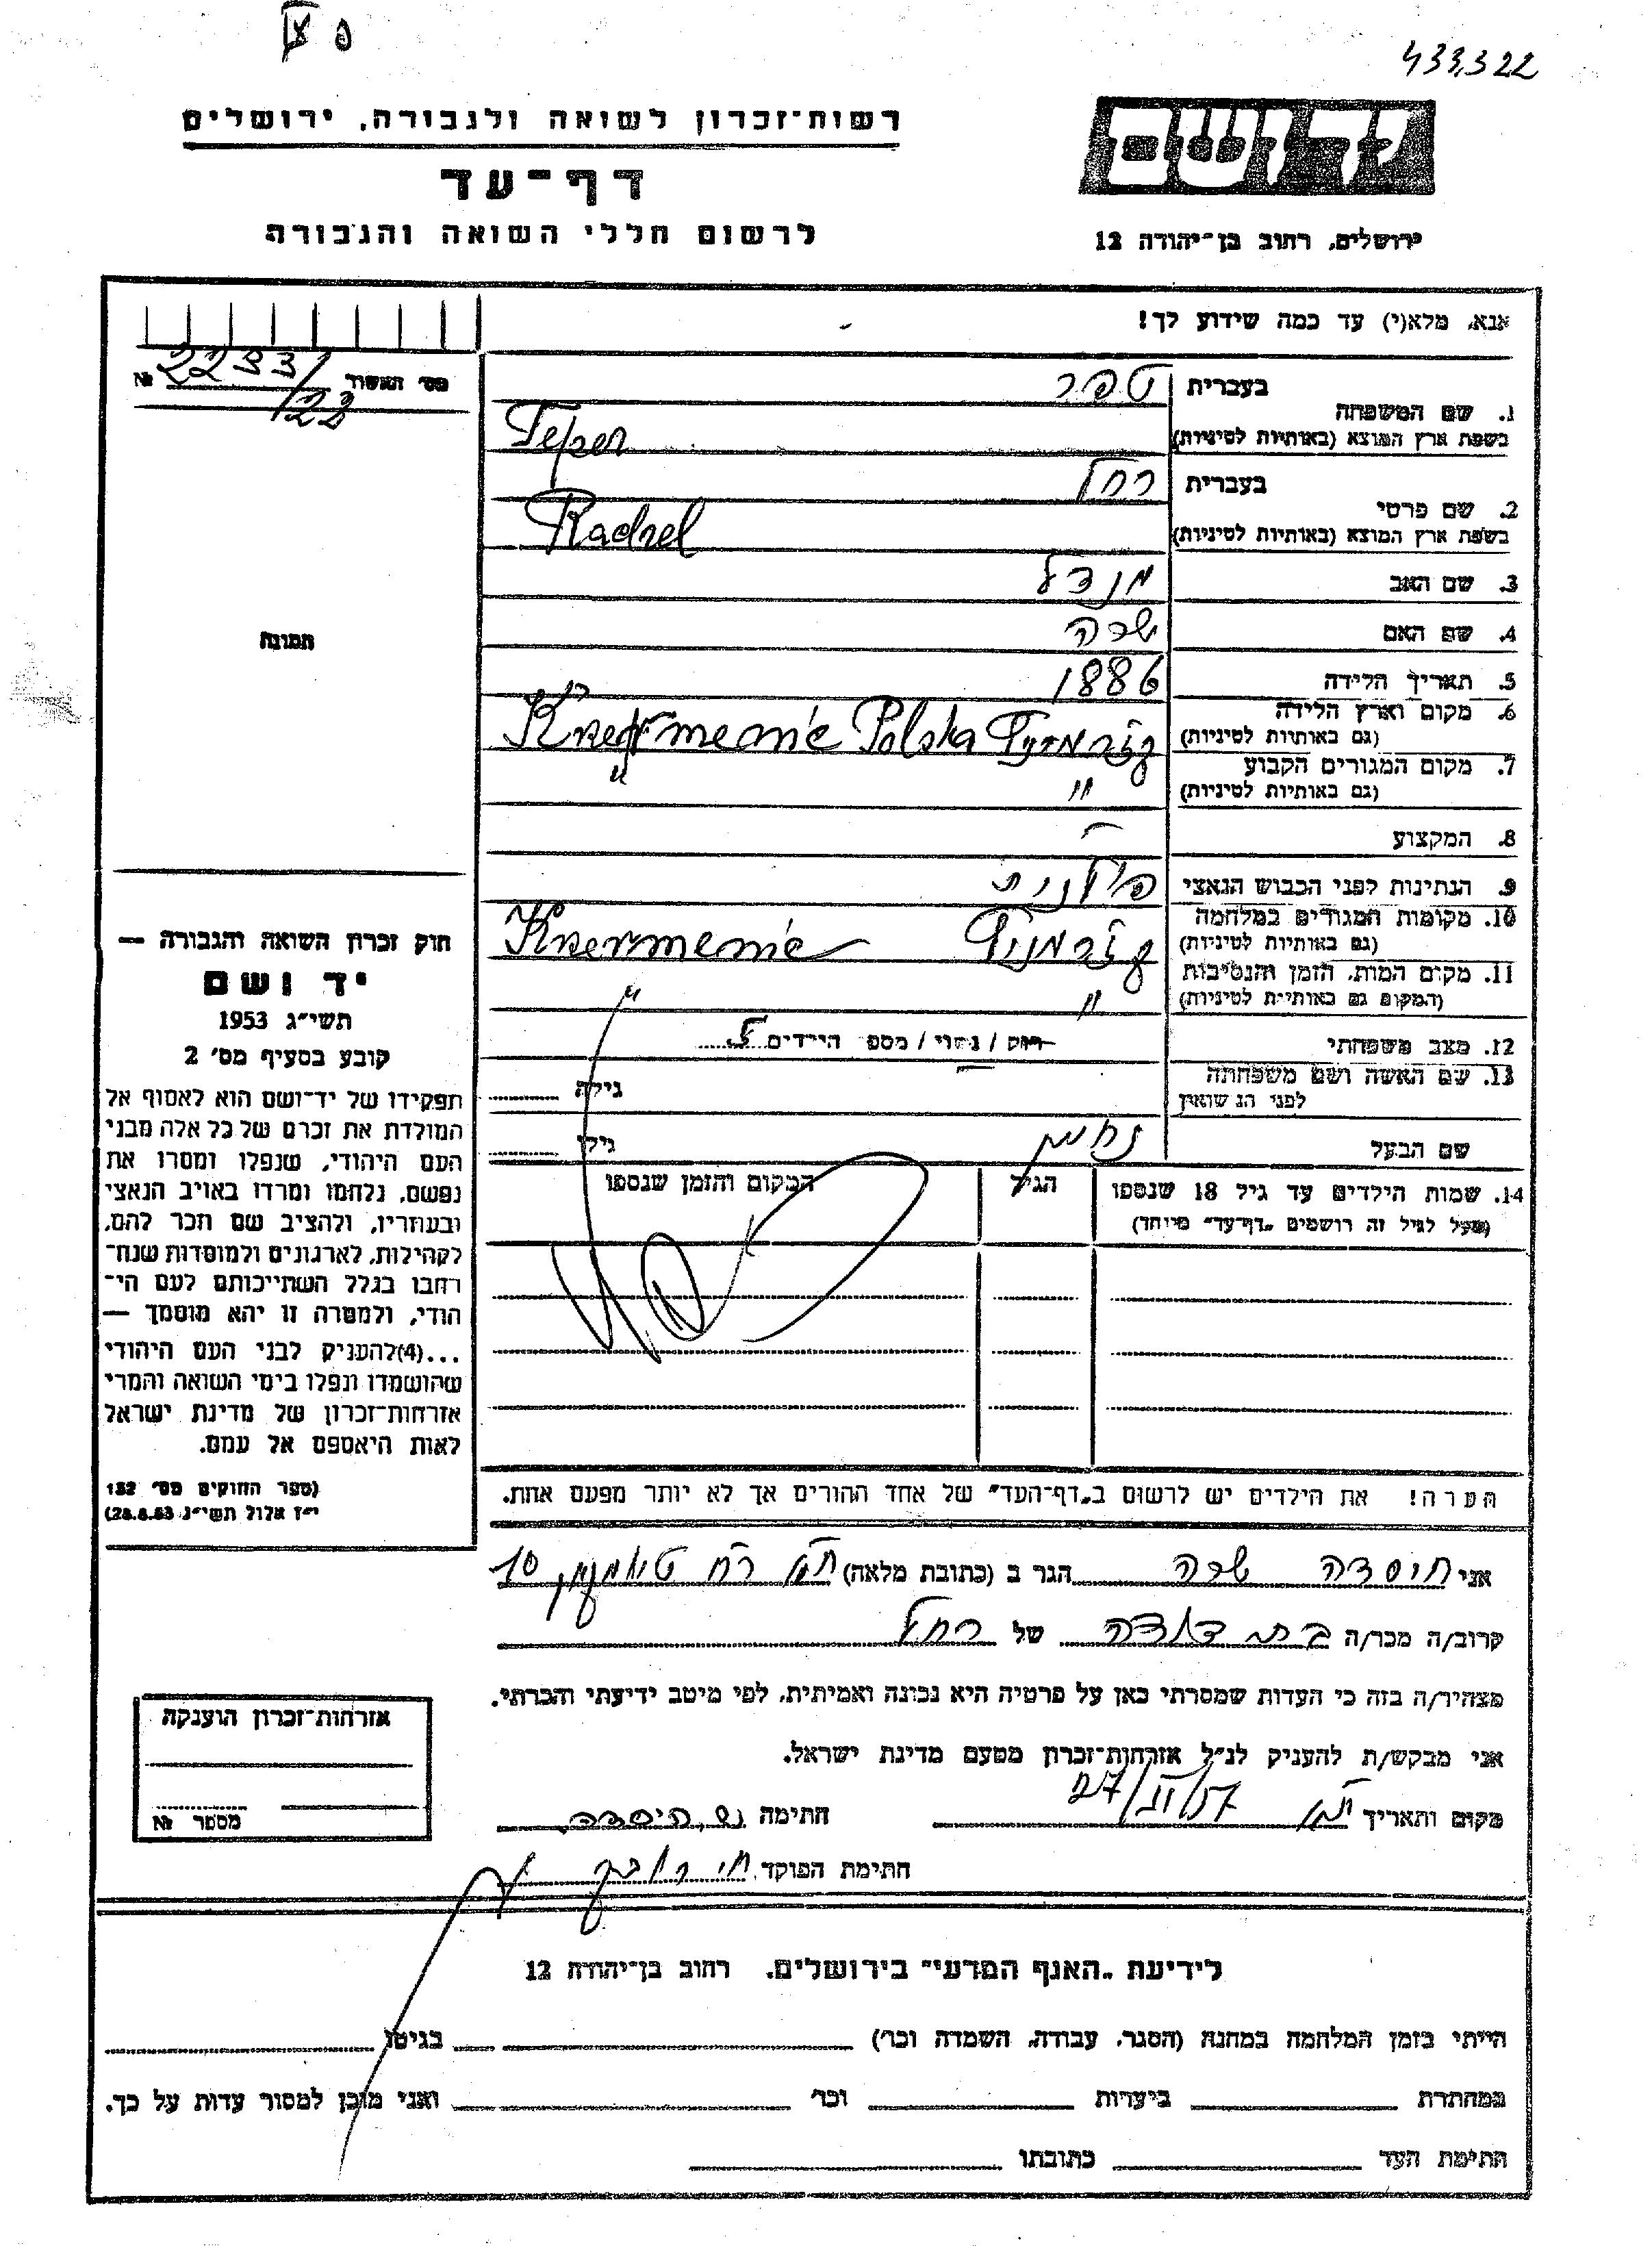 433322
רשות־זכרון לשואה ולגבורה, ירושלים
דף־עד
לרשום חללי השואה והגבורה
יד ושם
ירושלים, רחוב בן־יהודה 12
אנא, מלא(י) עד כמה שידוע לך!
מס׳ האשור № 2233/
122
תמונה
בעברית טפר
1. שם המשפחה
בשפת ארץ המוצא (באותיות לטיניות) Teper
בעברית רחל
2. שם פרטי
בשפת ארץ המוצא (באותיות לטיניות) Rachel
3. שם האב מנדל
4. שם האם שרה
5. תאריך הלידה 1886
6. מקום וארץ הלידה
(גם באותיות לטיניות) Polska
7. מקום המגורים הקבוע
(גם באותיות לטיניות) " "
8. המקצוע —
9. הנתינות לפני הכבוש הנאצי פולנית
10. מקומות המגורים במלחמה
(גם באותיות לטיניות) קזרמניץ Kzermenic
11. מקום המות, הזמן והנסיבות
(המקום גם באותיות לטיניות) " "
12. מצב משפחתי רווק / נשוי / מספ׳ הילדים 5
13. שם האשה ושם משפחתה
לפני הנשואין גילה
שם הבעל נחום גילו
14. שמות הילדים עד גיל 18 שנספו
(מעל לגיל זה רושמים „דף־עד״ מיוחד)
הגיל
המקום והזמן שנספו
הערה! את הילדים יש לרשום ב„דף־העד״ של אחד ההורים אך לא יותר מפעם אחת.
חוק זכרון השואה והגבורה —
יד ושם
תשי״ג 1953
קובע בסעיף מס׳ 2
תפקידו של יד־ושם הוא לאסוף אל
המולדת את זכרם של כל אלה מבני
העם היהודי, שנפלו ומסרו את
נפשם, נלחמו ומרדו באויב הנאצי
ובעוזריו, ולהציב שם וזכר להם,
לקהילות, לארגונים ולמוסדות שנח־
רחבו בגלל השתייכותם לעם הי־
הודי, ולמטרה זו יהא מוסמך —
...(4)להעניק לבני העם היהודי
שהושמדו ונפלו בימי השואה והמרי
אזרחות־זכרון של מדינת ישראל
לאות היאספם אל עמם.
(ספר החוקים מס׳ 132
י״ז אלול תשי״ג 28.8.53)
אני חוסדה שרה הגר ב (כתובת מלאה) 10
קרוב/ה מכר/ה בת דודה של רחל
מצהיר/ה בזה כי העדות שמסרתי כאן על פרטיה היא נכונה ואמיתית, לפי מיטב ידיעתי והכרתי.
אני מבקש/ת להעניק לנ״ל אזרחות־זכרון מטעם מדינת ישראל.
מקום ותאריך 27/VI/57 חתימה
חתימת הפוקד
אזרחות־זכרון הוענקה
מספר №
לידיעת „האגף המדעי״ בירושלים, רחוב בן־יהודה 12
הייתי בזמן המלחמה במחנה (הסגר, עבודה, השמדה וכר׳) בגיטו
במחתרת ביערות וכר׳ ואני מוכן למסור עדות על כך.
חתימת העד כתובתו